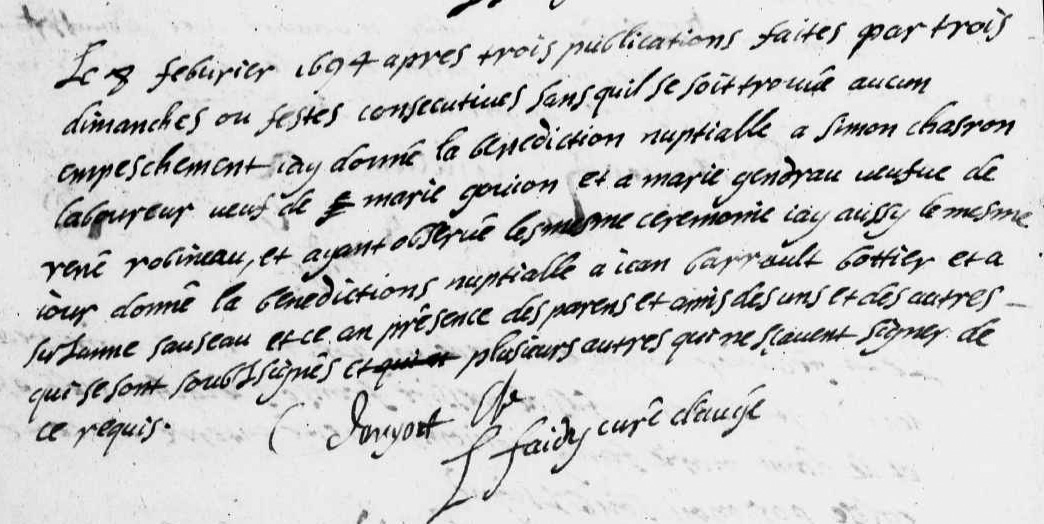 Le 8 feburier 1694 apres trois publications faites par trois
dimanches ou festes consecutiues sans quil se soit trouuê aucun
empeschement iay donnê la benediction nuptialle a simon chasron
laboureur ueuf de marie gouion et a marie gendrau ueufue de
renê robineau, et ayant obseruê les mesme ceremonie iay aussy le mesme
iour donnê la benedictions nuptialle a iean barrault bottier et a
suzanne sauseau et ce an prêsence des parens et amis des uns et des autres
qui se sont soubssignês et plusieurs autres qui ne sçauent signer de
ce requis.
faidy curê daugê